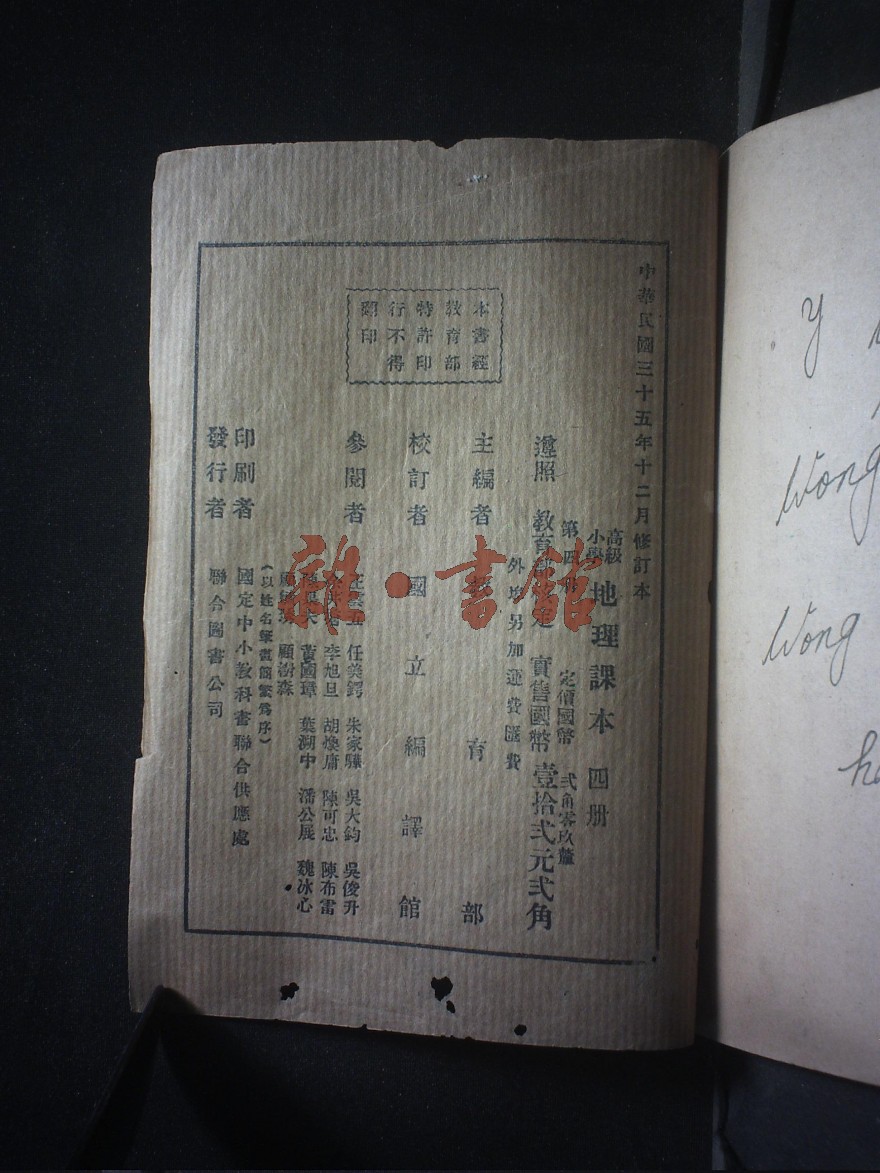 中華民國三十五年十二月修訂本
高級小學 地理課本 四册
第四册 定價國幣 弍角零玖釐
遵照 教育部 定 實售國幣 壹拾弍元弍角
外埠另加運費匯費
本書經
教育部
特許印
行不得
翻印
主編者 育部
校訂者 國立編譯館
參閱者
任美鍔 朱家驊 吳大鈞 吳俊升
李旭旦 胡煥庸 陳可忠 陳布雷
黃國璋 葉溯中 潘公展 魏冰心
顧樹森
(以姓名筆畫簡繁爲序)
印刷者 國定中小教科書聯合供應處
發行者 聯合圖書公司
雜·書館
y
Wong
Wong